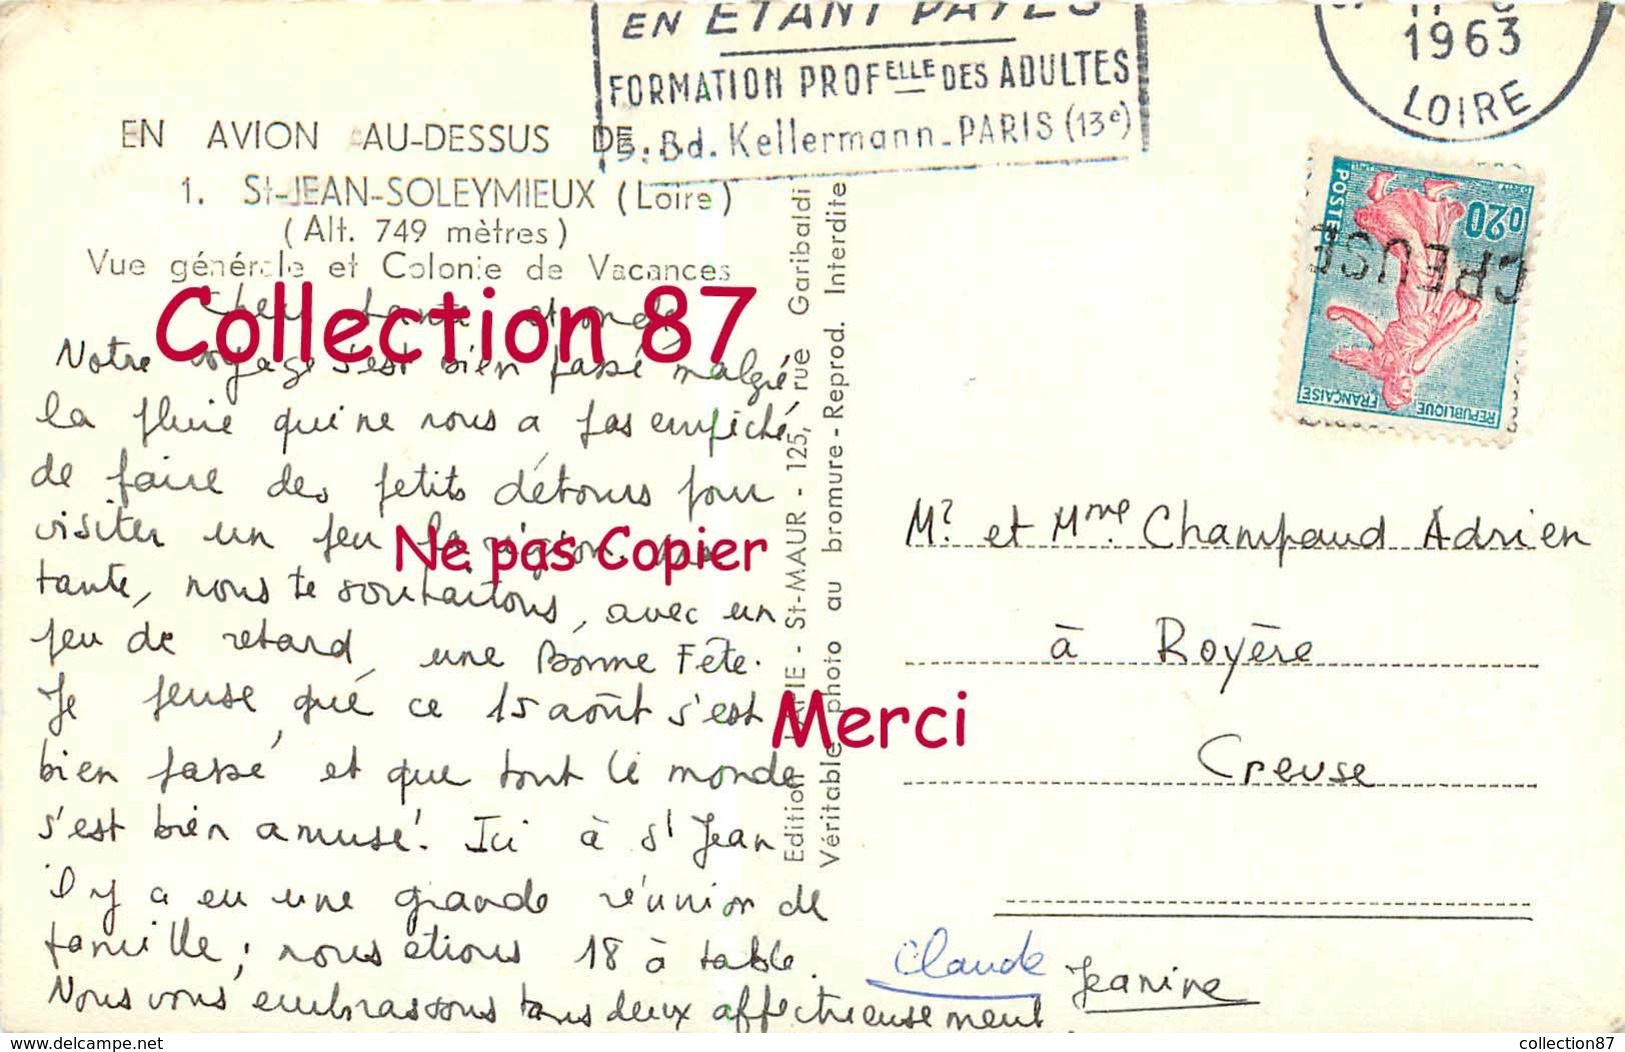 EN ÉTANT PAYÉS
FORMATION PROFELLE DES ADULTES
5. Bd. Kellermann - PARIS (13e)
1963
LOIRE
EN AVION AU-DESSUS DE
1. St-JEAN-SOLEYMIEUX (Loire)
(Alt. 749 mètres)
Vue générale et Colonie de Vacances
Collection 87
Notre voyage s'est bien passé malgré
la pluie qui ne nous a pas empêché
de faire des petits détours pour
visiter un peu la région.
Ne pas Copier
tante, nous te souhaitons, avec un
peu de retard, une Bonne Fête.
Je pense que ce 15 août s'est
Merci
bien passé et que tout le monde
s'est bien amusé. Ici à St Jean
il y a eu une grande réunion de
famille ; nous étions 18 à table.
Nous vous embrassons tous deux affectueusement
Claude Jeanine
Edition LAPIE - St-MAUR - 125, rue Garibaldi
Véritable photo au bromure - Reprod. Interdite
POSTES
0,20
CREUSE
REPUBLIQUE FRANÇAISE
Mr et Mme Champaud Adrien
à Royère
Creuse
delcampe.net
collection87